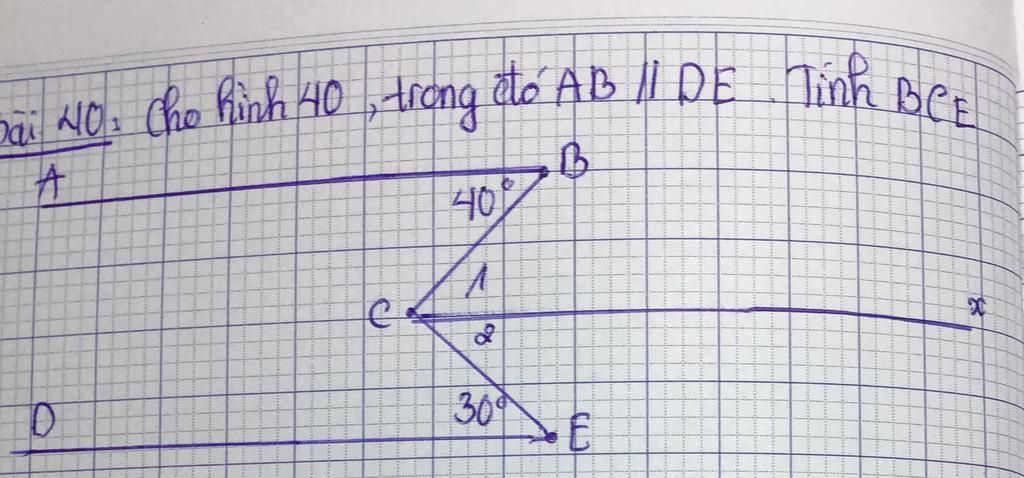 bài 40. Cho hình 40, trong đó AB // DE. Tính BCE
A
B
40°
1
C
x
2
D
30°
E